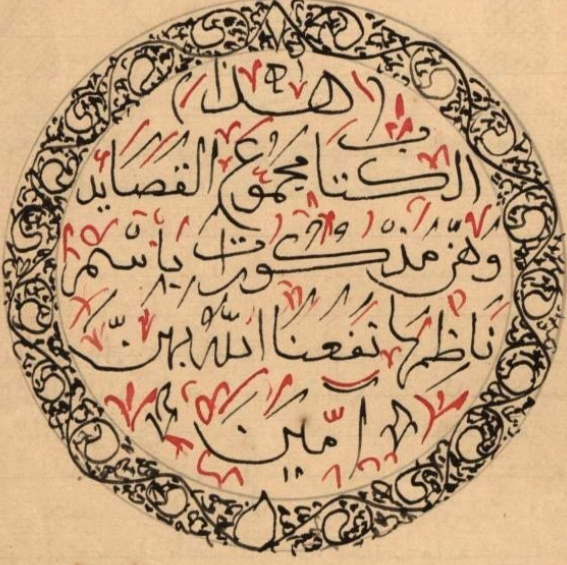 هذا
الكتاب مجموع القصايد
وهن مذكورات بأسم
ناظمها نفعنا الله بهن
امين